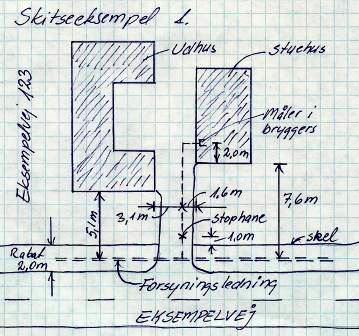 Skitseeksempel 1.
Udhus
Stuehus
Måler i
bryggers
Eksempelvej 123
2,0m
1,6m
3,1m
5,1m
7,6m
Stophane
1,0m
skel
Rabat
2,0m
Forsyningsledning
EKSEMPELVEJ